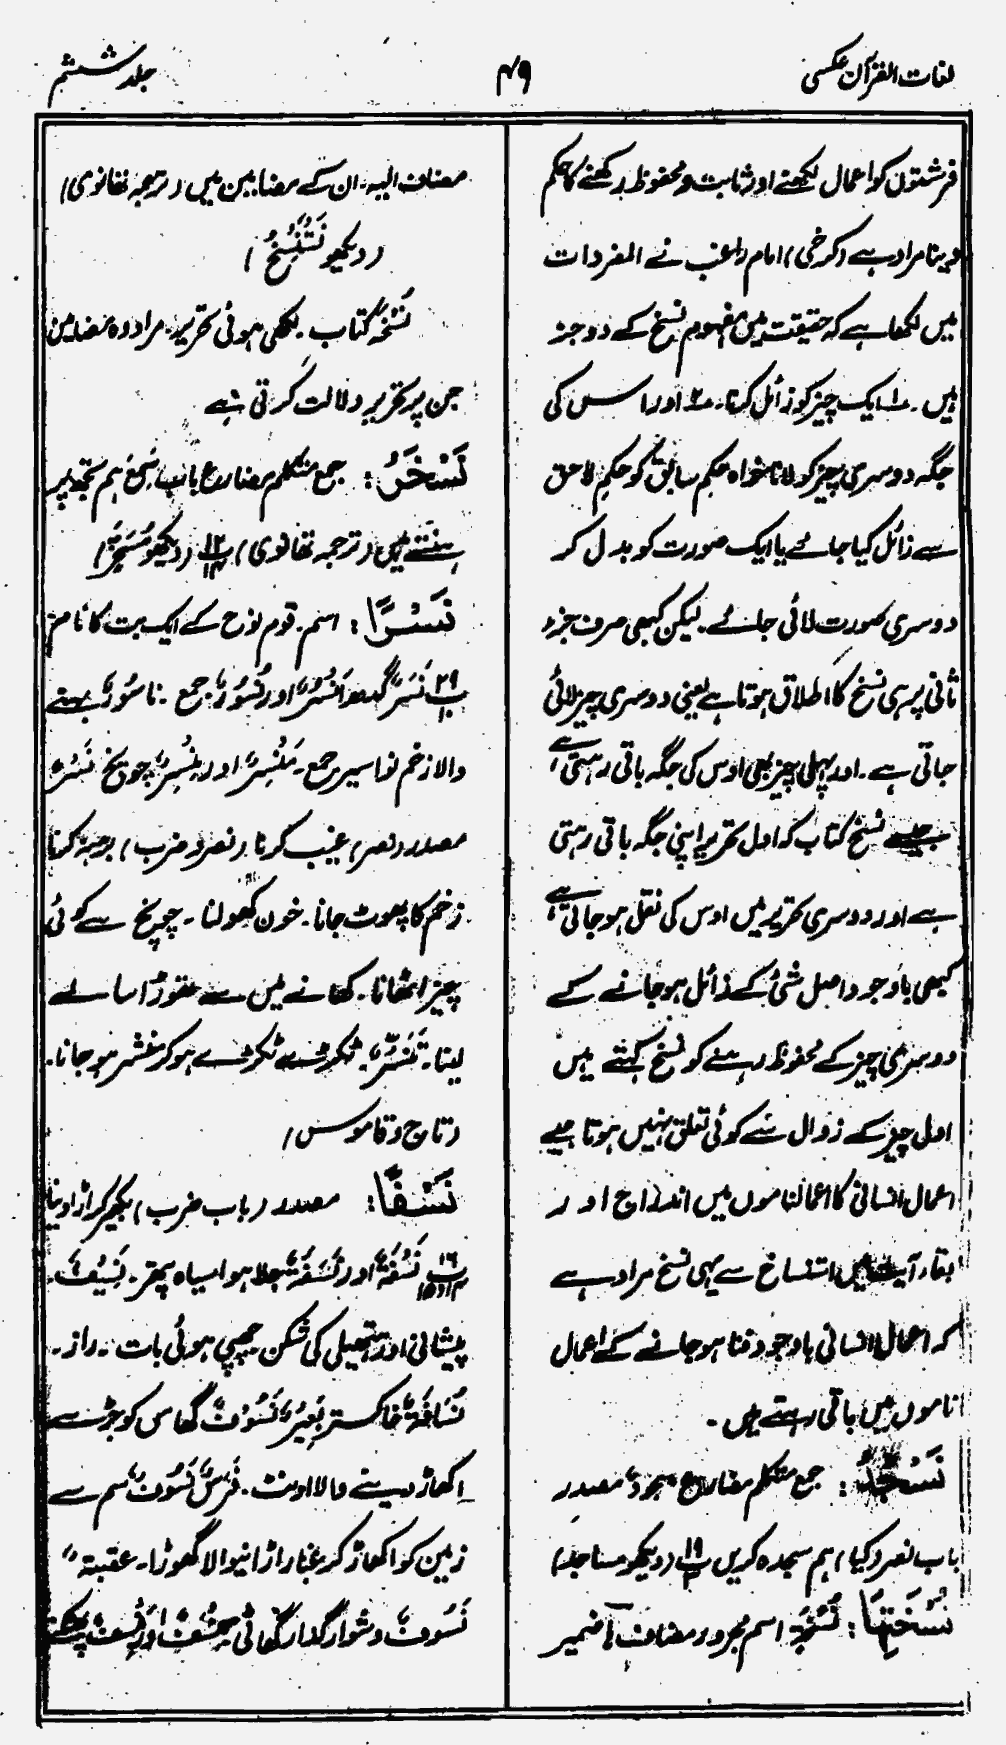 لغات القرآن عکسی
۴۹
جلد ششم
فرشتوں کو اعمال لکھنے اور ثابت و محفوظ رکھنے کا حکم
دینا مراد ہے (کرخی) امام راغب نے المفردات
میں لکھا ہے کہ حقیقت میں مفہوم نسخ کے دو جز
ہیں۔ ۱؎ ایک چیز کو زائل کرنا۔ ۲؎ اور اس کی
جگہ دوسری چیز کو لانا خواہ حکم سابق کو حکم لاحق
سے زائل کیا جائے یا ایک صورت کو بدل کر
دوسری صورت لائی جائے۔ لیکن کبھی صرف جزء
ثانی پر ہی نسخ کا اطلاق ہوتا ہے یعنی دوسری چیز لائی
جاتی ہے۔ اور پہلی چیز بھی اوس کی جگہ باقی رہتی ہے،
جیسے نسخ کتاب کہ اول تحریر اپنی جگہ باقی رہتی
ہے اور دوسری تحریر میں اوس کی نقل ہو جاتی ہے،
کبھی باوجود اصل شئ کے زائل ہو جانے کے
دوسری چیز کے محفوظ رہنے کو نسخ کہتے ہیں
اول چیز کے زوال سے کوئی تعلق نہیں ہوتا جیسے
اعمال انسانی کا اعمالناموں میں اندراج اور
بقاء آیت میں استنساخ سے یہی نسخ مراد ہے
کہ اعمال انسانی باوجود فنا ہو جانے کے اعمال
ناموں میں باقی رہتے ہیں۔
نَسْجُدُ : جمع متکلم مضارع سجود مصدر
باب نصر (کیا) ہم سجدہ کریں پ ۱۹ (دیکھو ساجدا)
نُسْخَتِهَا : نُسْخَةِ اسم مجرور مضاف ہا ضمیر
مضاف الیہ۔ ان کے مضامین میں (ترجمہ تھانوی)
(دیکھو نَسْتَنْسِخُ)
نُسْخَةٌ کتاب۔ لکھی ہوئی تحریر۔ مراد وہ مضامین
جن پر تحریر دلالت کرتی ہے
نَسْخَرُ : جمع متکلم مضارع باب سَمِعَ ہم تجھ پر
ہنستے ہیں (ترجمہ تھانوی) پ ۱۲ (دیکھو
نَسْرًا : اسم۔ قوم نوح کے ایک بت کا نام
پ ۲۹ نَسْرٌ گدھ اَنْسُرٌ اور نُسُوْرٌ جمع۔ ناسُوْرٌ بہنے
والا زخم نواسیر جمع۔ مَنْسِرٌ اور مِنْسَرٌ چونچ نَسْرٌ
مصدر (نصر) عیب کرنا (نصر و ضرب)
زخم کا پھوٹ جانا۔ خون کھولنا۔ چونچ سے کوئی
چیز اٹھانا۔ کھانے میں سے تھوڑا سا لے
لینا۔ تَنَسُّرٌ، ٹکڑے ٹکڑے ہو کر منتشر ہو جانا۔
(تاج و قاموس)
نَسْفًا : مصدر (باب ضرب) بکھیر کر اڑا دینا
پ ۱۶ نُسْفَةٌ اور نَسَفَةٌ جلا ہوا سیاہ پتھر۔ نَسِیْفٌ۔
پیشانی اور ہتھیلی کی شکن چھپی ہوئی بات۔ راز۔
نُسَافَةٌ خاکستر بَعِیْرٌ نَسُوْفٌ گھاس کو جڑ سے
اکھاڑ دینے والا اونٹ۔ فَرَسٌ نَسُوْفٌ سم سے
زمین کو اکھاڑ کر غبار اڑانیوالا گھوڑا۔ عقبةٌ
نَسُوْفٌ دشوار گذار گھاٹی